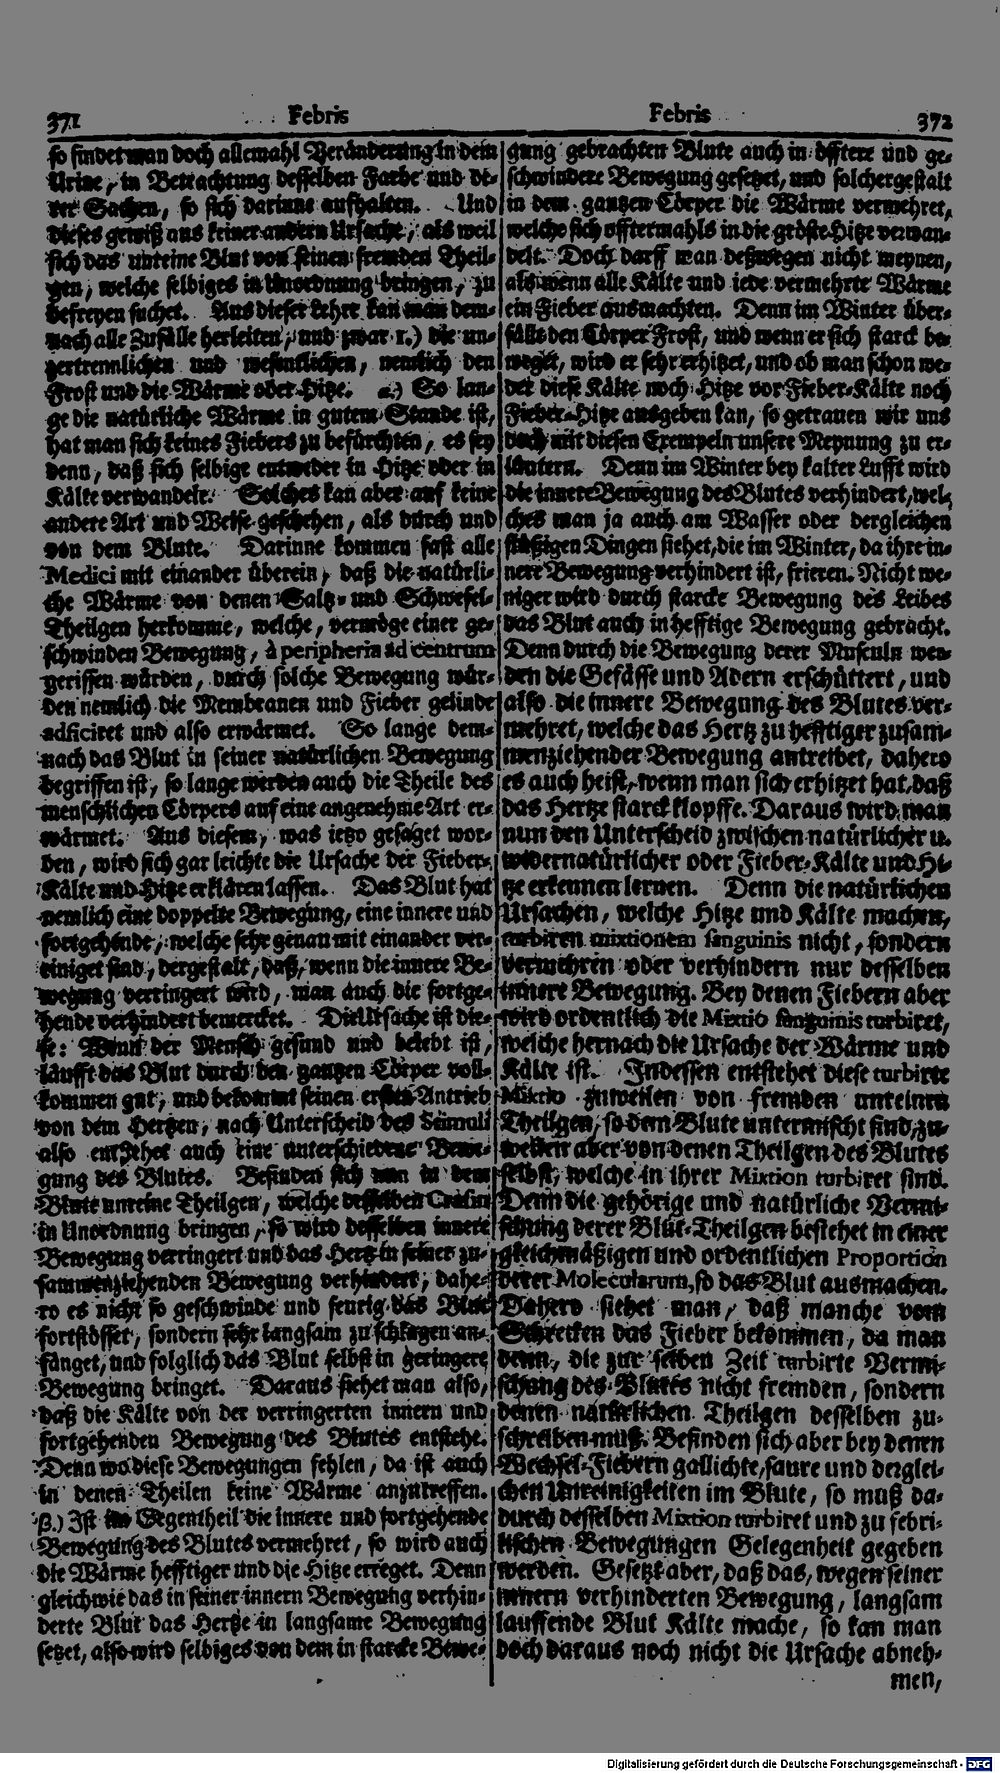 371 Febris
so findet man doch allemahl Veränderung in dem
Urine, in Betrachtung desselben Farbe und de-
rer Sachen, so sich darinne aufhalten. Und
dieses gewiß aus keiner andern Ursache, als weil
sich das unreine Blut von seinen fremden Theil-
gen, welche selbiges in Unordnung bringen, zu
befreyen suchet. Aus dieser Lehre kan man dem-
nach alle Zufälle herleiten, und zwar 1.) die un-
zertrennlichen und wesentlichen, nemlich den
Frost und die Wärme oder Hitze. α.) So lan-
ge die natürliche Wärme in gutem Stande ist,
hat man sich keines Fiebers zu befürchten, es sey
denn, daß sich selbige entweder in Hitze oder in
Kälte verwandele. Solches kan aber auf keine
andere Art und Weise geschehen, als durch und
von dem Blute. Darinne kommen fast alle
Medici mit einander überein, daß die natürli-
che Wärme von denen Saltz- und Schwefel-
Theilgen herkomme, welche, vermöge einer ge-
schwinden Bewegung, à peripheria ad centrum
gerissen würden, durch solche Bewegung wür-
den nemlich die Membranen und Fieber gelinde
adficiret und also erwärmet. So lange dem-
nach das Blut in seiner natürlichen Bewegung
begriffen ist, so lange werden auch die Theile des
menschlichen Cörpers auf eine angenehme Art er-
wärmet. Aus diesem, was ietzo gesaget wor-
den, wird sich gar leichte die Ursache der Fieber-
Kälte und Hitze erklären lassen. Das Blut hat
nemlich eine doppelte Bewegung, eine innere und
fortgehende, welche sehr genau mit einander ver-
einiget sind, dergestalt, daß, wenn die innere Be-
wegung verringert wird, man auch die fortge-
hende verhindert bemercket. Die Ursache ist die-
se: Wenn der Mensch gesund und belebt ist,
läufft das Blut durch den gantzen Cörper voll-
kommen gut, und bekommt seinen ersten Antrieb
von dem Hertzen, nach Unterscheid des Stimuli
also entstehet auch eine unterschiedene Bewe-
gung des Blutes. Befinden sich nun in dem
Blute unreine Theilgen, welche desselben Crasin
in Unordnung bringen, so wird desselben innere
Bewegung verringert und das Hertz in seiner zu-
sammenziehenden Bewegung verhindert, dahe-
ro es nicht so geschwinde und feurig das Blut
fortstösset, sondern sehr langsam zu schlagen an-
fänget, und folglich das Blut selbst in geringere
Bewegung bringet. Daraus siehet man also,
daß die Kälte von der verringerten innern und
fortgehenden Bewegung des Blutes entstehe.
Denn wo diese Bewegungen fehlen, da ist auch
in denen Theilen keine Wärme anzutreffen.
β.) Ist im Gegentheil die innere und fortgehende
Bewegung des Blutes vermehret, so wird auch
die Wärme hefftiger und die Hitze erreget. Denn
gleichwie das in seiner innern Bewegung verhin-
derte Blut das Hertze in langsame Bewegung
setzet, also wird selbiges von dem in starcke Bewe-
Febris 372
gung gebrachten Blute auch in öfftere und ge-
schwindere Bewegung gesetzet, und solchergestalt
in dem gantzen Cörper die Wärme vermehret,
welche sich offtermahls in die gröste Hitze verwan-
delt. Doch darff man deßwegen nicht meynen,
als wenn alle Kälte und iede vermehrte Wärme
ein Fieber ausmachten. Denn im Winter über-
fällt den Cörper Frost, und wenn er sich starck be-
weget, wird er sehr erhitzet, und ob man schon we-
der diese Kälte noch Hitze vor Fieber-Kälte noch
Fieber-Hitze ausgeben kan, so getrauen wir uns
doch mit diesen Exempeln unsere Meynung zu er-
läutern. Denn im Winter bey kalter Lufft wird
die innere Bewegung des Blutes verhindert, wel-
ches man ja auch am Wasser oder dergleichen
flüßigen Dingen siehet, die im Winter, da ihre in-
nere Bewegung verhindert ist, frieren. Nicht we-
niger wird durch starcke Bewegung des Leibes
das Blut auch in hefftige Bewegung gebracht.
Denn durch die Bewegung derer Musculn wer-
den die Gefässe und Adern erschüttert, und
also die innere Bewegung des Blutes ver-
mehret, welche das Hertz zu hefftiger zusam-
menziehender Bewegung antreibet, dahero
es auch heist, wenn man sich erhitzet hat, daß
das Hertze starck klopffe. Daraus wird man
nun den Unterscheid zwischen natürlicher u.
widernatürlicher oder Fieber-Kälte und Hi-
tze erkennen lernen. Denn die natürlichen
Ursachen, welche Hitze und Kälte machen,
turbiren mixtionem sanguinis nicht, sondern
vermehren oder verhindern nur desselben
innere Bewegung. Bey denen Fiebern aber
wird ordentlich die Mixtio sanguinis turbiret,
welche hernach die Ursache der Wärme und
Kälte ist. Indessen entstehet diese turbirte
Mixtio zuweilen von fremden unreinen
Theilgen, so dem Blute untermischt sind, zu-
weilen aber von denen Theilgen des Blutes
selbst, welche in ihrer Mixtion turbiret sind.
Denn die gehörige und natürliche Vermi-
schung derer Blut-Theilgen bestehet in einer
gleichmäßigen und ordentlichen Proportion
derer Molecularum, so das Blut ausmachen.
Dahero siehet man, daß manche vom
Schrecken das Fieber bekommen, da man
denn, die zur selben Zeit turbirte Vermi-
schung des Blutes nicht fremden, sondern
denen natürlichen Theilgen desselben zu-
schreiben muß. Befinden sich aber bey denen
Wechsel-Fiebern gallichte, saure und derglei-
chen Unreinigkeiten im Blute, so muß da-
durch desselben Mixtion turbiret und zu febri-
lischen Bewegungen Gelegenheit gegeben
werden. Gesetzt aber, daß das, wegen seiner
innern verhinderten Bewegung, langsam
lauffende Blut Kälte mache, so kan man
doch daraus noch nicht die Ursache abneh-
men,
Digitalisierung gefördert durch die Deutsche Forschungsgemeinschaft - DFG